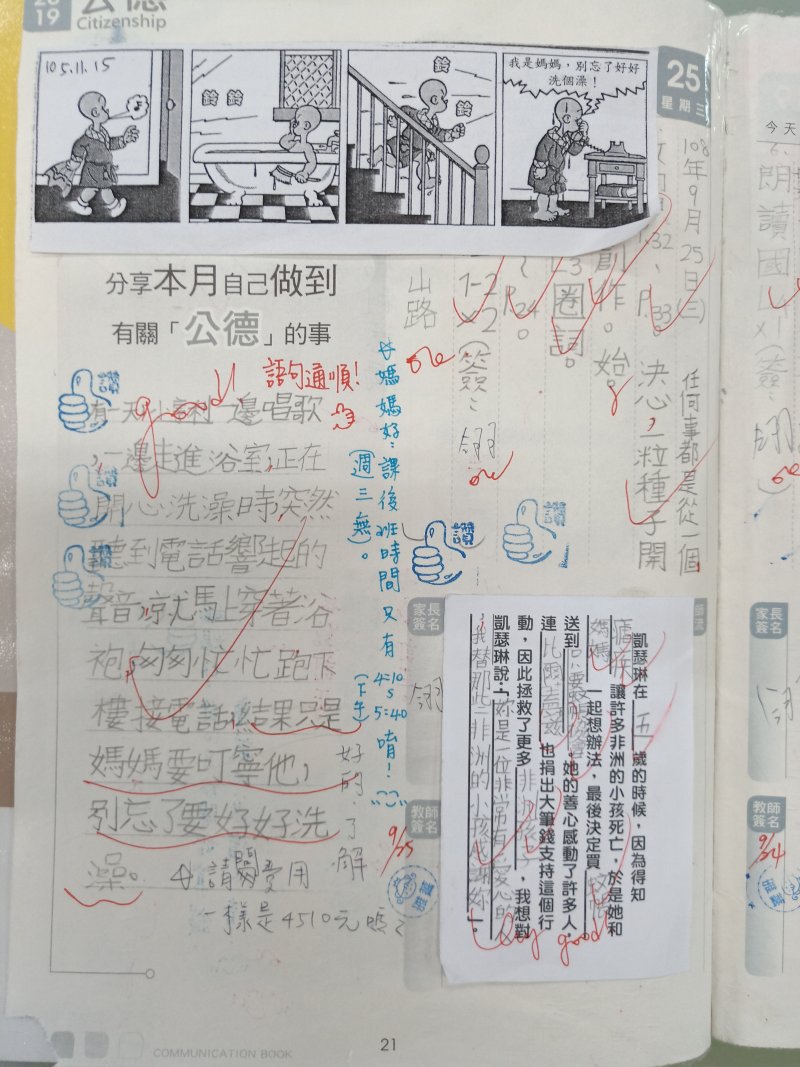 2019
公德
Citizenship
105.11.15
鈴
鈴
鈴
鈴
我是媽媽，別忘了好好
洗個澡！
25
星期三
108年9月25日(三)
任何事都是從一個
決心，一粒種子開
始。
創作。
圈詞。
1-2
×2(簽：翊
山路
ok
ok
分享本月自己做到
有關「公德」的事
good!
語句通順!
讚
讚
讚
讚
讚
一邊唱歌
，一邊走進浴室，正在
開心洗澡時突然
聽到電話響起的
聲音，就馬上穿著浴
袍，匆匆忙忙跑下
樓接電話，結果只是
媽媽要叮嚀他，
別忘了要好好洗
澡。
媽媽好：課後班時間又有4:10
5:40
(下午)
唷!
(週三無)。
好的了解
請問費用
一樣是4510元嗎?
家長簽名
翊
教師簽名
9/25
凱瑟琳在五歲的時候，因為得知
瘧疾讓許多非洲的小孩死亡，於是她和
媽媽一起想辦法，最後決定買蚊帳
送到
，她的善心感動了許多人，
連比爾蓋茲也捐出大筆錢支持這個行
動，因此拯救了更多非洲孩子，我想對
凱瑟琳說：「妳是一位非常有愛心的
，我替那些非洲的小孩感謝妳」。
Very good!
今天
6、朗讀國
(簽：翊)
ok
家長簽名
教師簽名
9/24
21
COMMUNICATION BOOK